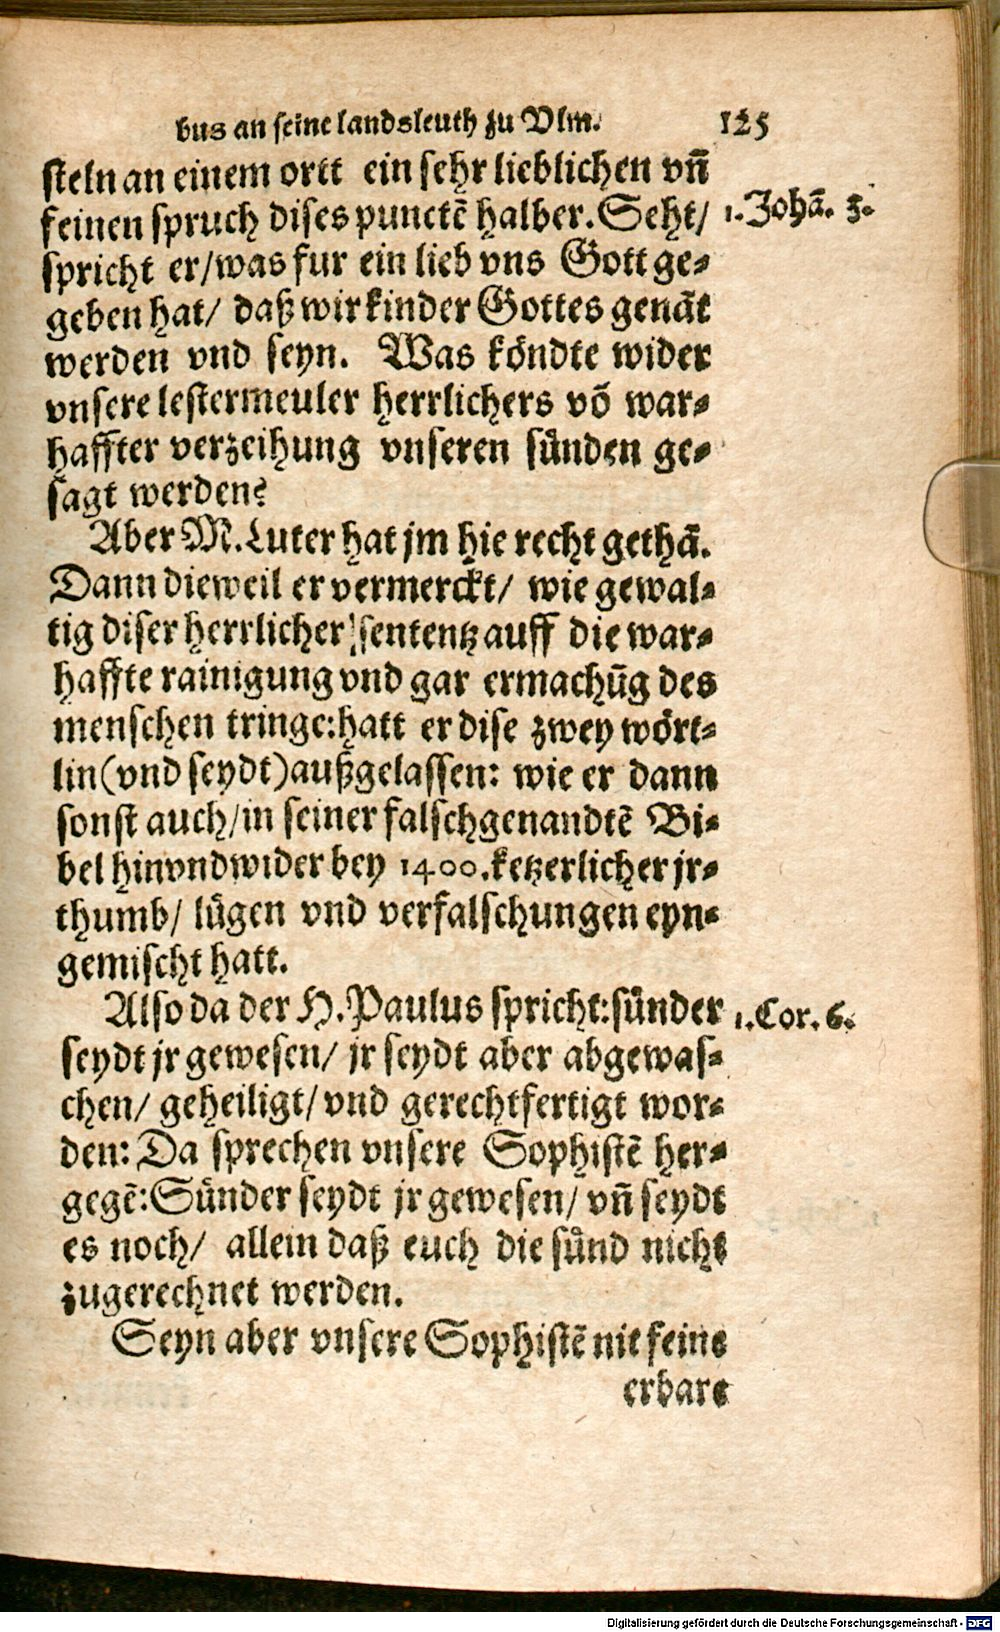 bus an seine landsleuth zu Vlm. 125
steln an einem ortt ein sehr lieblichen vn̄
feinen spruch dises punctē halber. Seht/ 1. Johā. 3.
spricht er/was fur ein lieb vns Gott ge⸗
geben hat/ daß wir kinder Gottes genāt
werden vnd seyn. Was köndte wider
vnsere lestermeuler herrlichers võ war⸗
haffter verzeihung vnseren sünden ge⸗
sagt werden?
Aber M. Luter hat jm hie recht gethā.
Dann dieweil er vermerckt/ wie gewal⸗
tig diser herrlicher sententz auff die war⸗
haffte rainigung vnd gar ermachūg des
menschen tringe: hatt er dise zwey wört⸗
lin (vnd seydt) außgelassen: wie er dann
sonst auch/in seiner falschgenandtē Bi⸗
bel hinvndwider bey 1400. ketzerlicher jr⸗
thumb/ lügen vnd verfalschungen eyn⸗
gemischt hatt.
Also da der H. Paulus spricht: sünder 1. Cor. 6.
seydt jr gewesen/ jr seydt aber abgewas⸗
chen/ geheiligt/ vnd gerechtfertigt wor⸗
den: Da sprechen vnsere Sophistē her⸗
gegē: Sünder seydt jr gewesen/ vn̄ seydt
es noch/ allein daß euch die sünd nicht
zugerechnet werden.
Seyn aber vnsere Sophistē nit feine
erbare
Digitalisierung gefördert durch die Deutsche Forschungsgemeinschaft - DFG